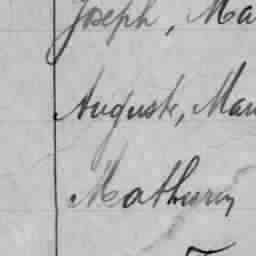 Joseph, Ma
Auguste, Mar
Mathurin